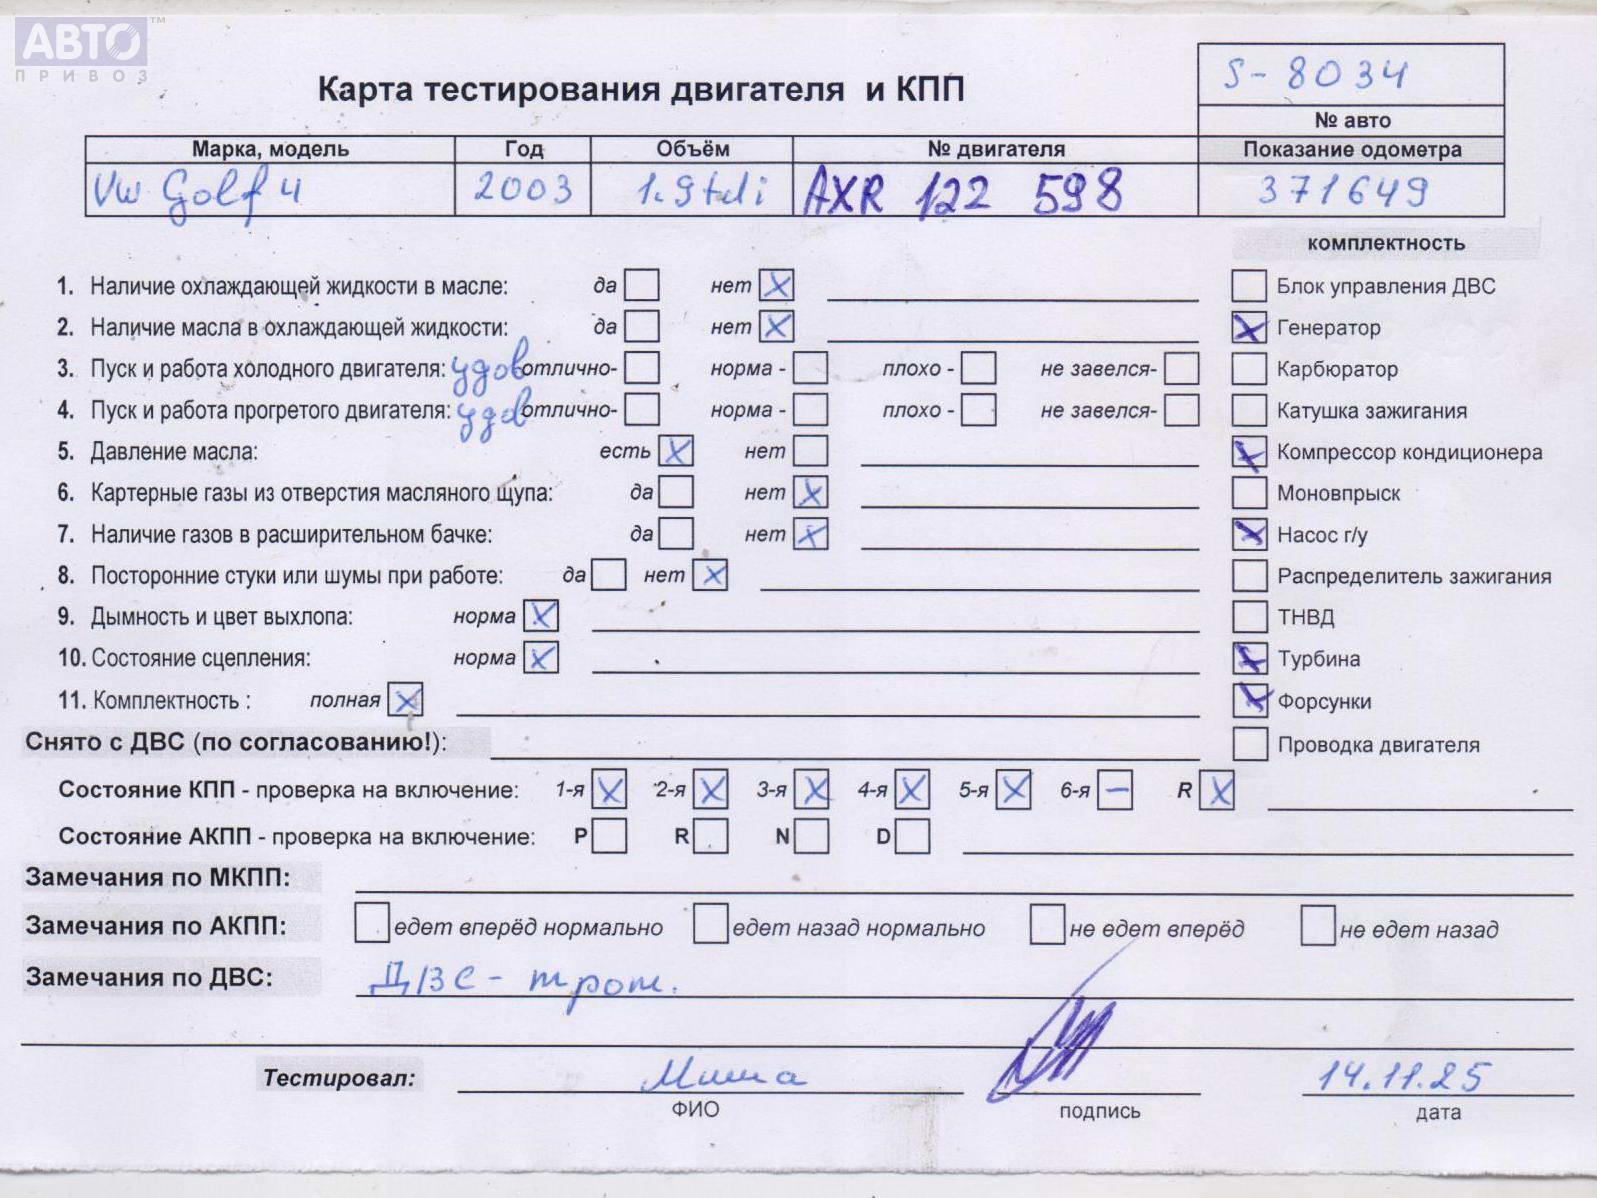 АВТО™
ПРИВОЗ
S-8034
Карта тестирования двигателя и КПП
№ авто
Марка, модель Год Объём № двигателя Показание одометра
VW Golf 4 2003 1.9tdi AXR 122 598 371649
комплектность
1. Наличие охлаждающей жидкости в масле: да нет X Блок управления ДВС
2. Наличие масла в охлаждающей жидкости: да нет X X Генератор
3. Пуск и работа холодного двигателя: удов отлично- норма - плохо - не завелся- Карбюратор
4. Пуск и работа прогретого двигателя: удов отлично- норма - плохо - не завелся- Катушка зажигания
5. Давление масла: есть X нет X Компрессор кондиционера
6. Картерные газы из отверстия масляного щупа: да нет X Моновпрыск
7. Наличие газов в расширительном бачке: да нет X X Насос г/у
8. Посторонние стуки или шумы при работе: да нет X Распределитель зажигания
9. Дымность и цвет выхлопа: норма X ТНВД
10. Состояние сцепления: норма X X Турбина
11. Комплектность : полная X X Форсунки
Снято с ДВС (по согласованию!): Проводка двигателя
Состояние КПП - проверка на включение: 1-я X 2-я X 3-я X 4-я X 5-я X 6-я – R X
Состояние АКПП - проверка на включение: P R N D
Замечания по МКПП:
Замечания по АКПП: едет вперёд нормально едет назад нормально не едет вперёд не едет назад
Замечания по ДВС: ДВС - трот.
Тестировал: Миша 14.11.25
ФИО подпись дата